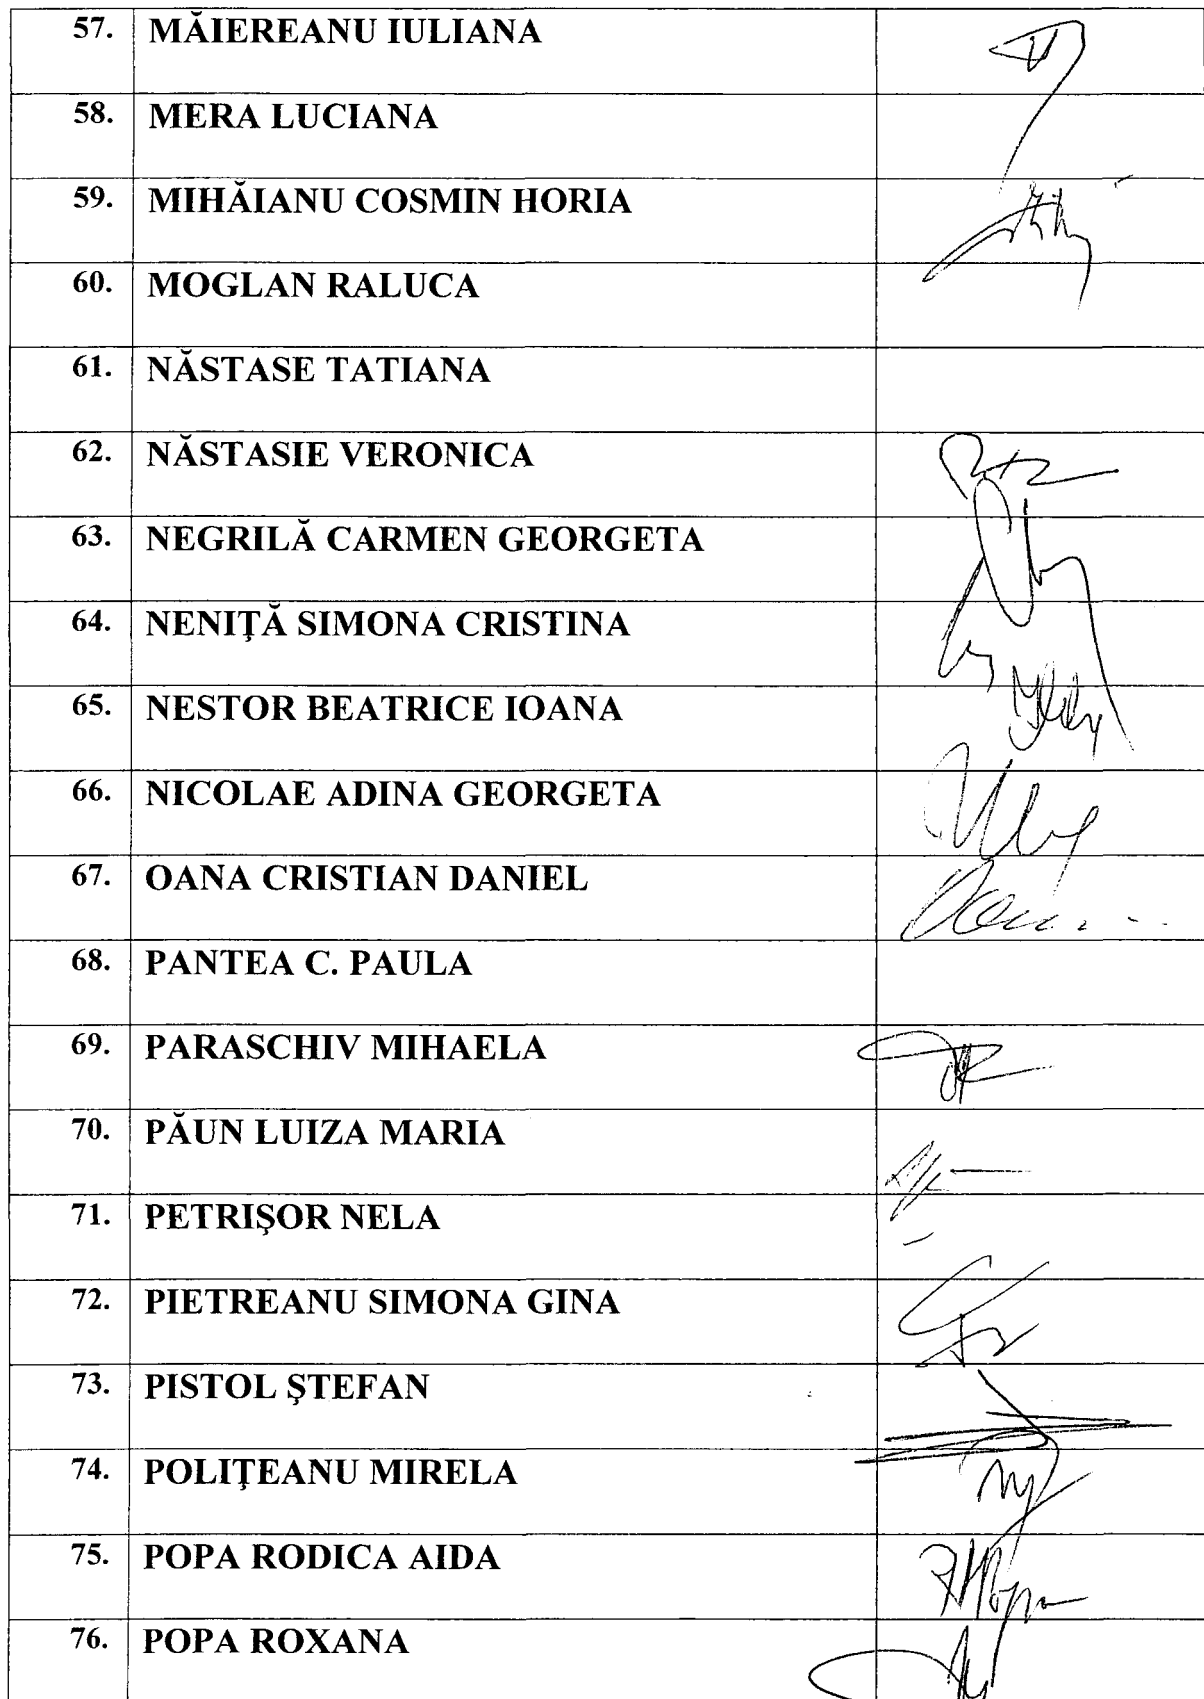 57. MĂIEREANU IULIANA
58. MERA LUCIANA
59. MIHĂIANU COSMIN HORIA
60. MOGLAN RALUCA
61. NĂSTASE TATIANA
62. NĂSTASIE VERONICA
63. NEGRILĂ CARMEN GEORGETA
64. NENIŢĂ SIMONA CRISTINA
65. NESTOR BEATRICE IOANA
66. NICOLAE ADINA GEORGETA
67. OANA CRISTIAN DANIEL
68. PANTEA C. PAULA
69. PARASCHIV MIHAELA
70. PĂUN LUIZA MARIA
71. PETRIŞOR NELA
72. PIETREANU SIMONA GINA
73. PISTOL ŞTEFAN
74. POLIŢEANU MIRELA
75. POPA RODICA AIDA
76. POPA ROXANA